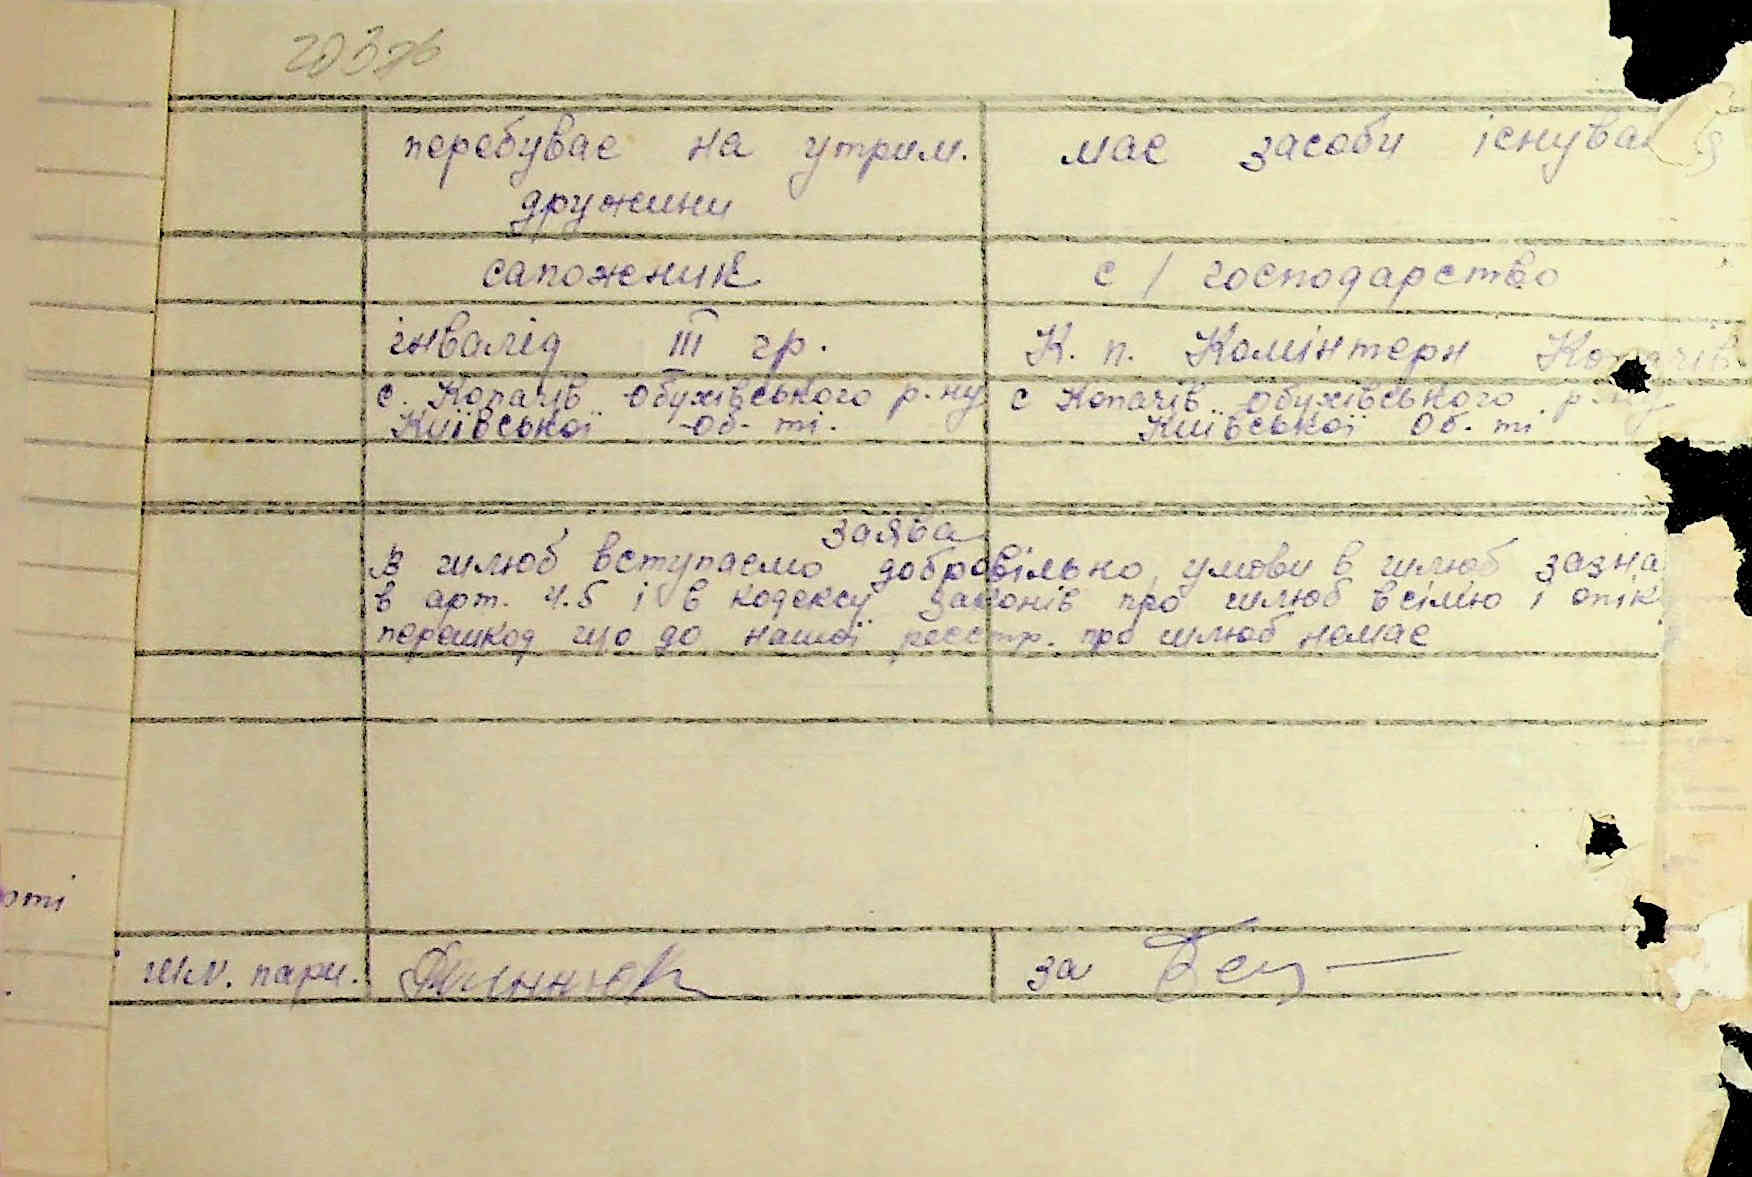 перебуває на утрим. має засоби існува
дружини
сапожник с/господарство
інвалід III гр. К. п. Комінтерн Копачів
с. Копачів Обухівського р.ну с Копачів Обухівського р.ну
Київської об-ті. Київської Об. ті
заява
В шлюб вступаємо добровільно, умови в шлюб зазна
в арт. 4.5 і в кодексу законів про шлюб всімю і опік
перешкод що до нашої реєстр. про шлюб немає
рті
шл. пари. за